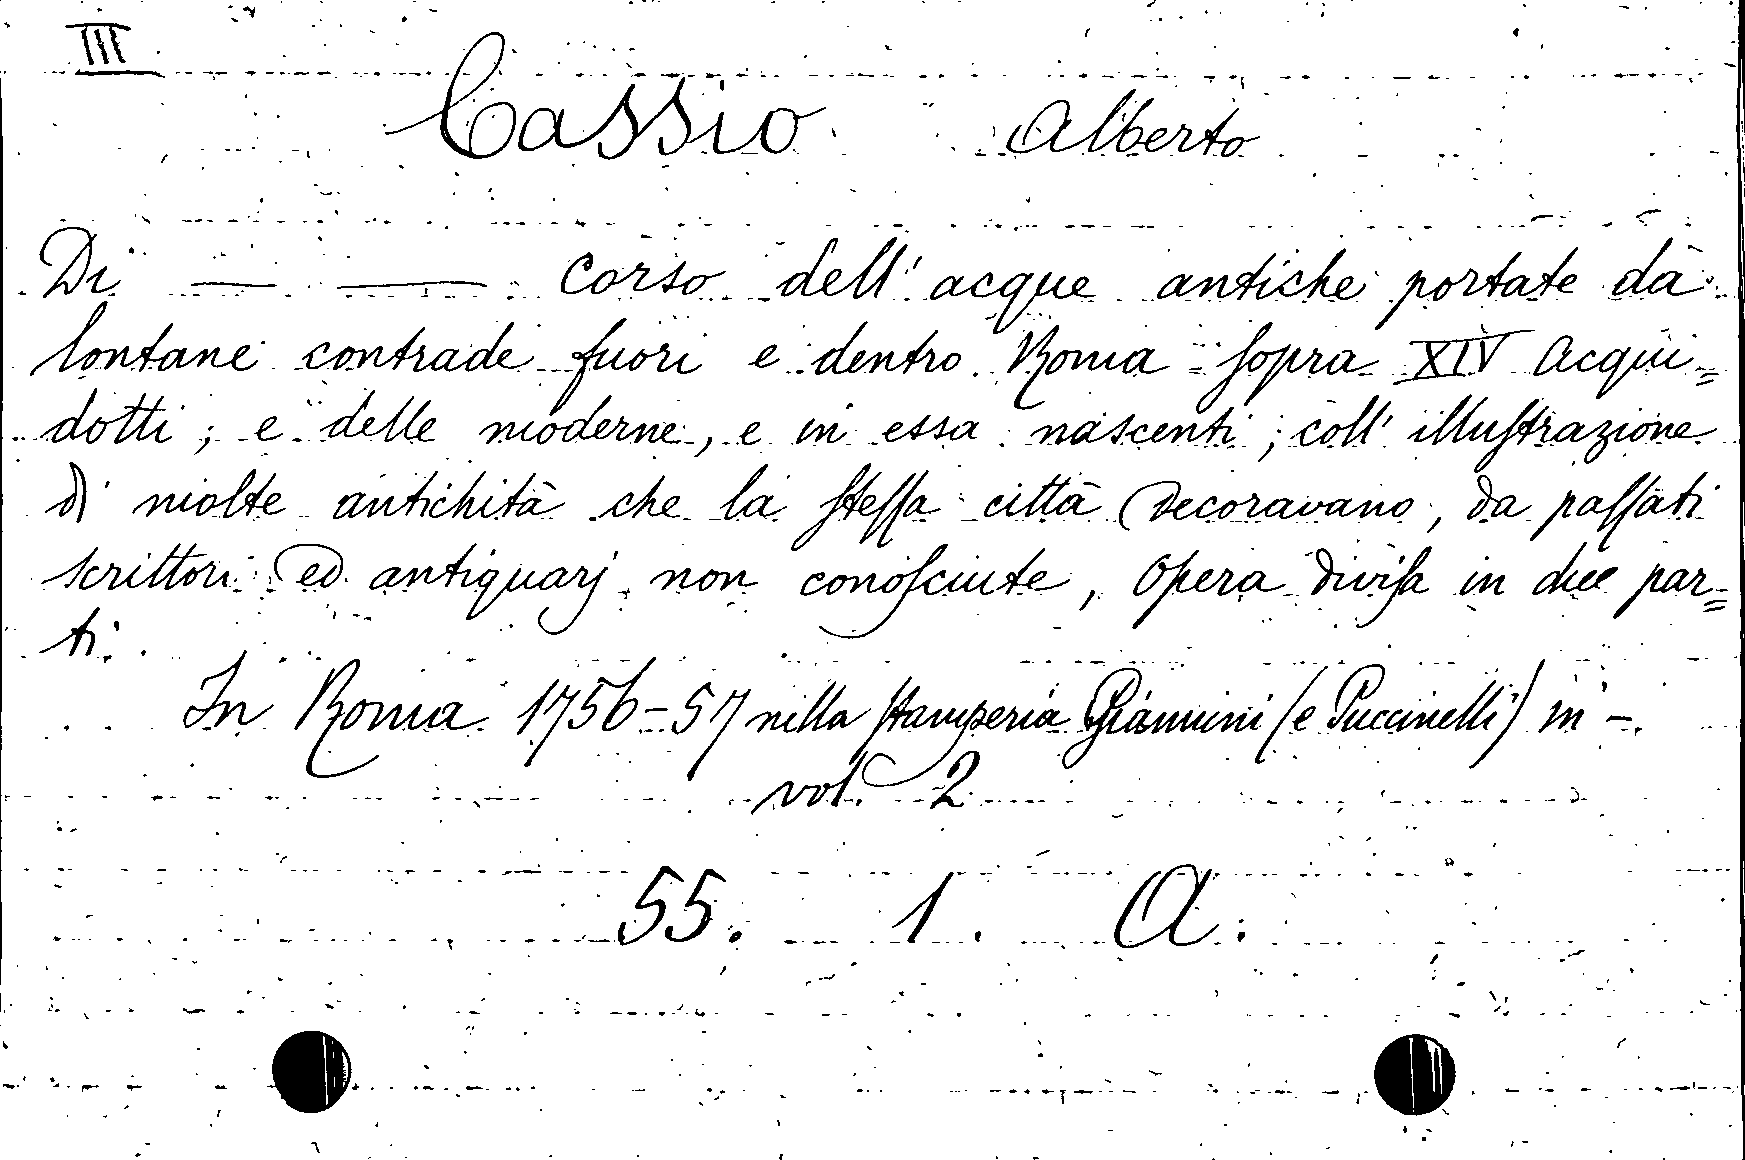 III
Cassio Alberto
Di — — corso dell' acque antiche portate da
lontane contrade fuori e dentro Roma sopra XIV acqui=
dotti; e delle moderne, e in essa nascenti; coll' illuſtrazione
di molte antichità che la ſteſſa città decoravano, da paſſati
scrittori ed antiquarj non conoſciute, Opera diviſa in due par=
ti.
In Roma 1756-57 nella ſtamperia Giannini (e Puccinelli) in -.
vol. 2
55. 1. A.